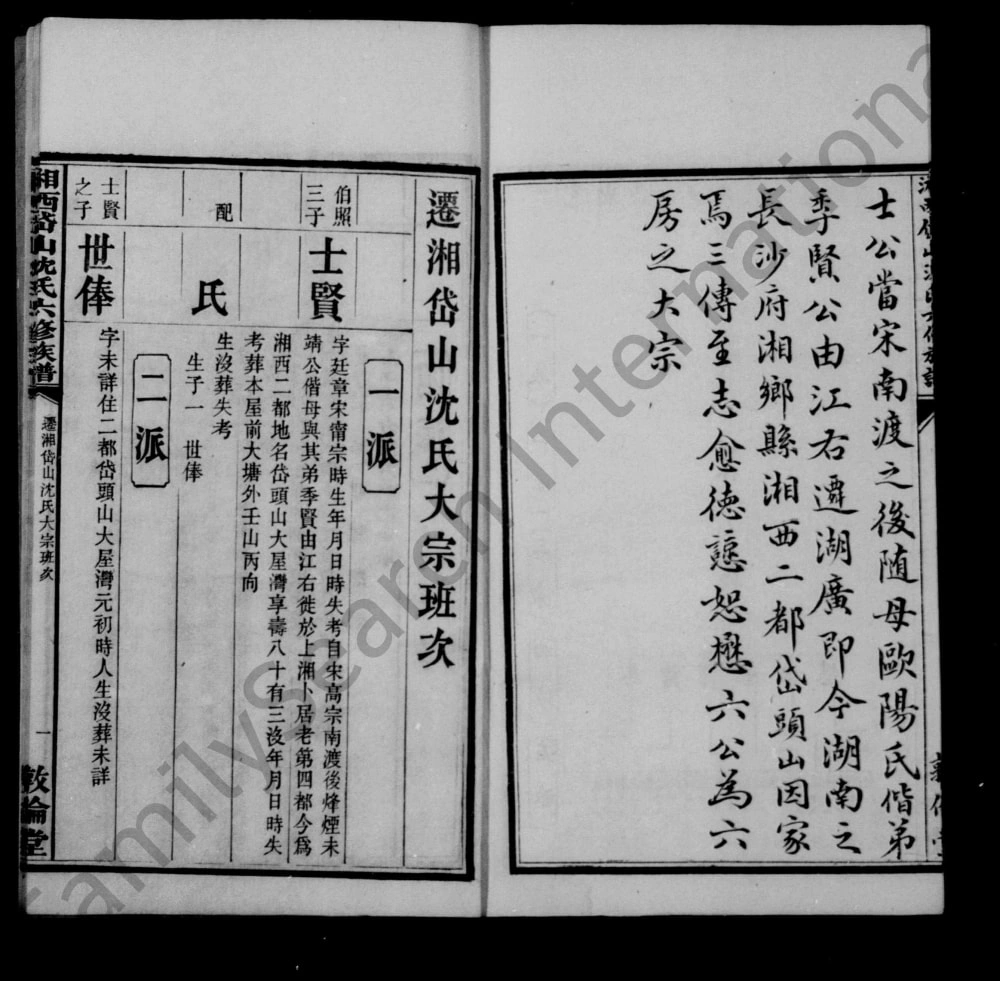 士公當宋南渡之後随母歐陽氏偕弟
季賢公由江右遷湖廣即今湖南之
長沙府湘鄉縣湘西二都岱頭山因家
焉三傳至志愈德譓恕懋六公為六
房之大宗
遷湘岱山沈氏大宗班次
一派
伯照
三子
士賢
字廷章宋甯宗時生年月日時失考自宋高宗南渡後烽煙未
靖公偕母與其弟季賢由江右徙於上湘卜居老第四都今爲
湘西二都地名岱頭山大屋灣享壽八十有三沒年月日時失
考葬本屋前大塘外壬山丙向
配
氏
生沒葬失考
生子一 世俸
二派
士賢
之子
世俸
字未詳住二都岱頭山大屋灣元初時人生沒葬未詳
湘西岱山沈氏六修族譜
遷湘岱山沈氏大宗班次
一
敦倫堂
FamilySearch International